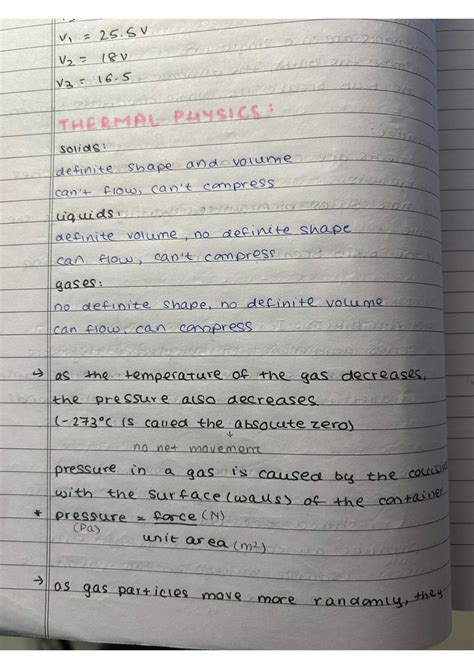 V₁ = 25.5V
V₂ = 18V
V₃ = 16.5
THERMAL PHYSICS:
solids:
definite shape and volume
can't flow, can't compress
liquids:
definite volume, no definite shape
can flow, can't compress
gases:
no definite shape, no definite volume
can flow, can compress
→ as the temperature of the gas decreases,
the pressure also decreases.
(-273°C is called the absolute zero)
↓
no net movement
pressure in a gas is caused by the
with the surface (walls) of the container
* pressure = force (N)
(Pa)
unit area (m²)
→ as gas particles move more randomly, they